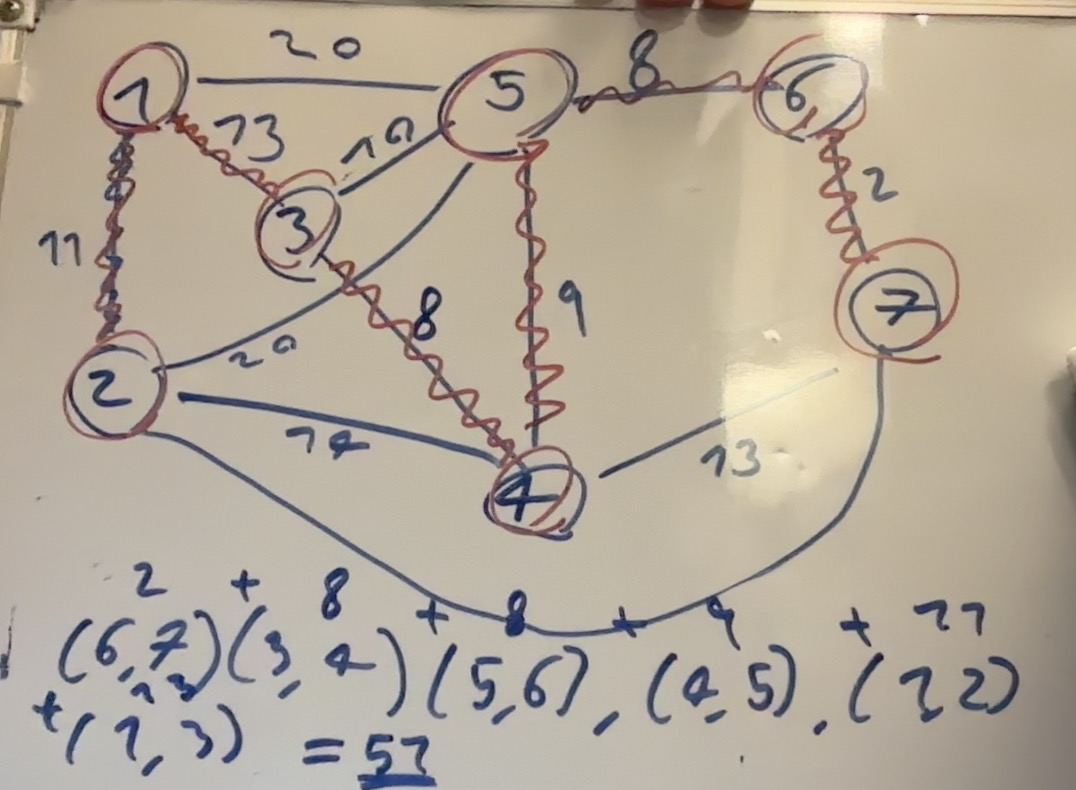 20
1
5
8
6
13
10
3
2
11
8
9
7
20
2
14
13
4
2 + 8 + 8 + 9 + 11
(6,7)(3,4)(5,6),(4,5),(1,2)
13
+(1,3) = 51